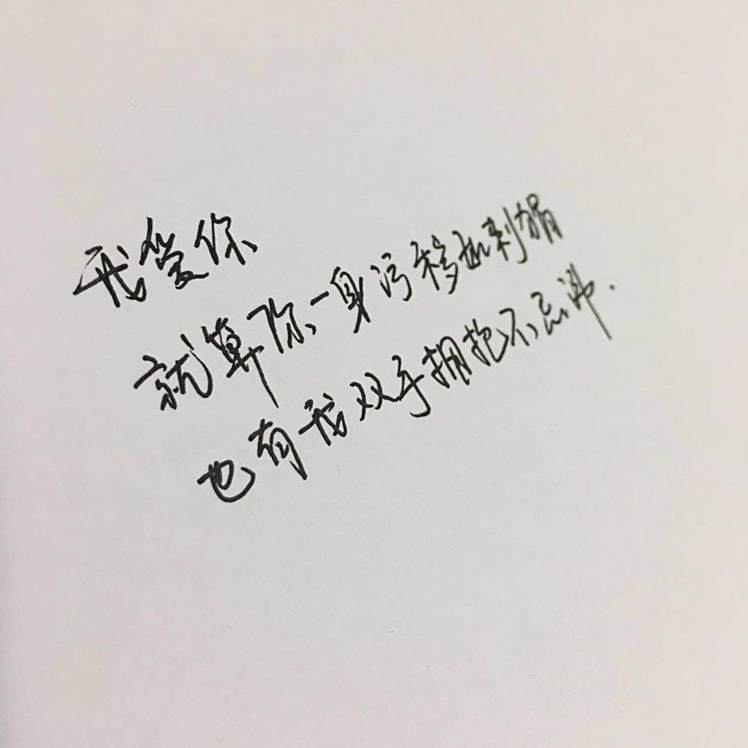 我爱你
就算你一身污秽如刺猬
也有我双手拥抱不忌讳.